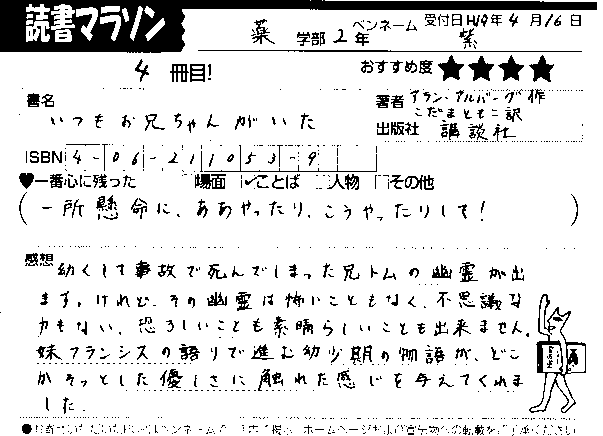 読書マラソン
薬 学部 2 年 ペンネーム 紫 受付日 H19年 4 月 16 日
4 冊目! おすすめ度 ★★★★
書名 いつもお兄ちゃんがいた
著者 アラン・アルバーグ作 こだまともこ訳
出版社 講談社
ISBN 4-06-211053-9
♥一番心に残った □場面 ☑ことば □人物 □その他
(一所懸命に、ああやったり、こうやったりして!)
感想 幼くして事故で死んでしまった兄トムの幽霊が出
ます。けれど、その幽霊は怖いこともなく、不思議な
力もない、恐ろしいことも素晴らしいことも出来ません。
妹フランシスの語りで進む幼少期の物語が、どこ
かそっとした優しさに触れた感じを与えてくれま
した。